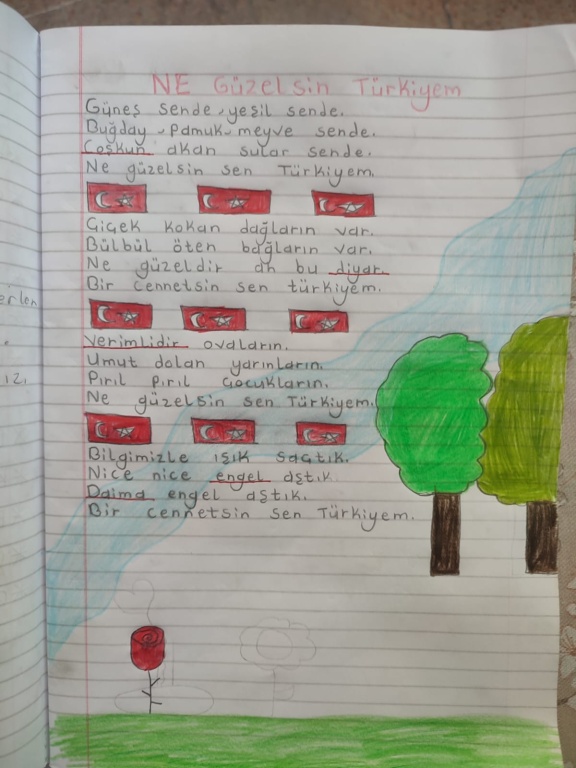 NE Güzelsin Türkiyem
Güneş sende, yeşil sende.
Buğday, pamuk, meyve sende.
Coşkun akan sular sende.
Ne güzelsin sen Türkiyem.
Çiçek kokan dağların var.
Bülbül öten bağların var.
Ne güzeldir ah bu diyar.
Bir cennetsin sen türkiyem.
Verimlidir ovaların.
Umut dolan yarınların.
Pırıl pırıl çocukların.
Ne güzelsin sen Türkiyem.
Bilgimizle ışık saçtık.
Nice nice engel aştık.
Daima engel aştık.
Bir cennetsin sen Türkiyem.
erlen
ız.